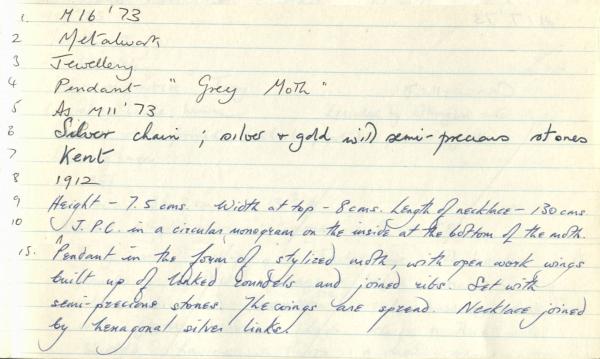 1. M16 '73
2 Metalwork
3 Jewellery
4 Pendant "Grey Moth"
5 As M11 '73
6 Silver chain ; silver + gold with semi-precious stones
7 Kent
8 1912
9 Height - 7.5 cms. Width at top - 8 cms. Length of necklace - 130 cms.
10 J.P.C. in a circular monogram on the inside at the bottom of the moth.
15. "Pendant in the form of stylized moth, with open work wings
built up of linked roundels and joined ribs. Set with
semi-precious stones. The wings are spread. Necklace joined
by hexagonal silver links.